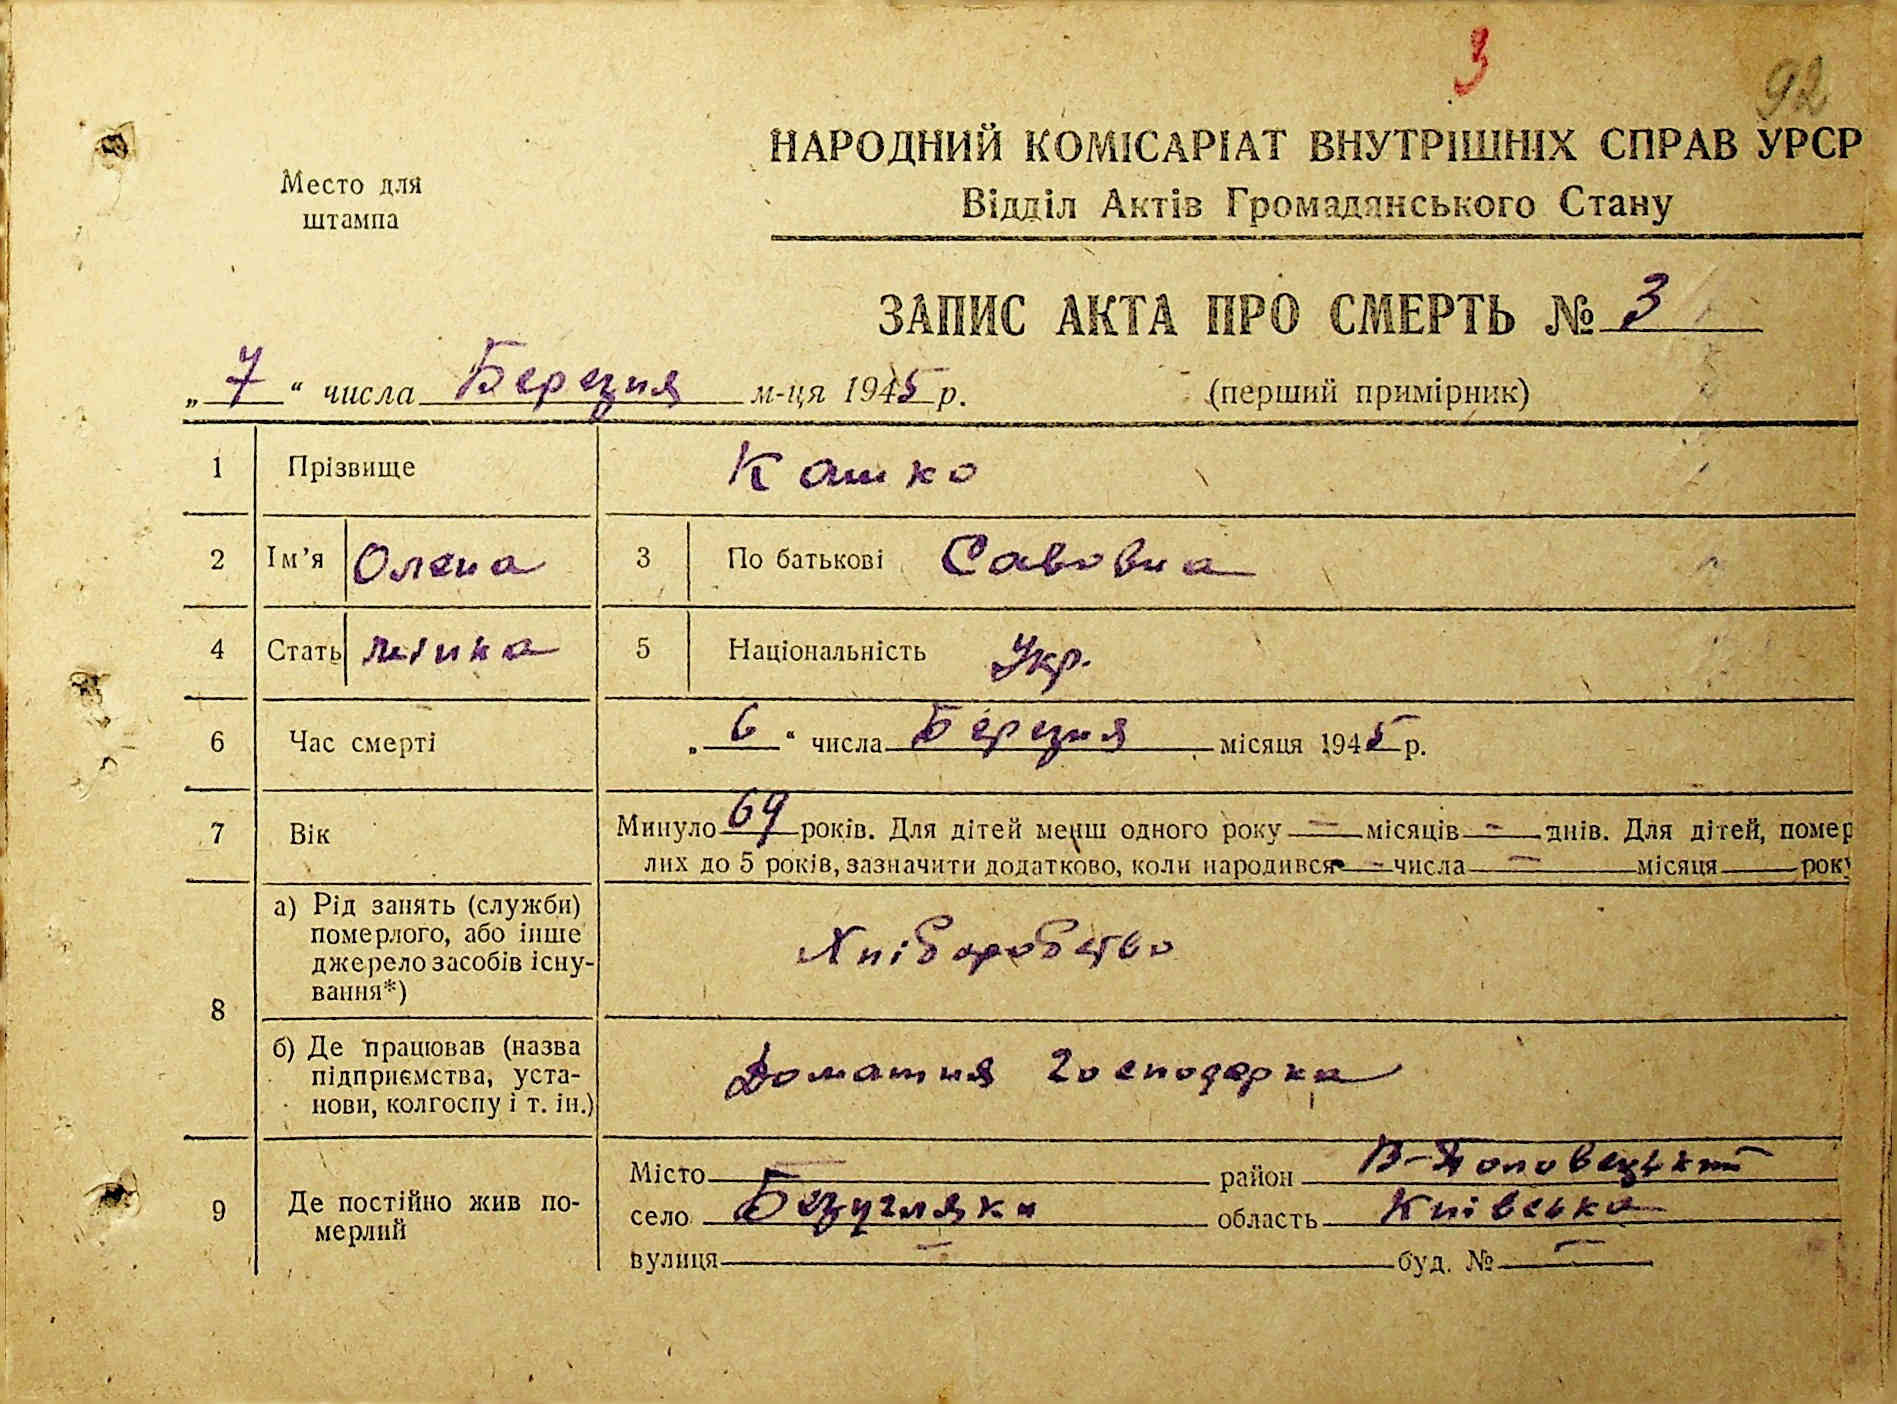 3
92
НАРОДНИЙ КОМІСАРІАТ ВНУТРІШНІХ СПРАВ УРСР
Відділ Актів Громадянського Стану
Место для
штампа
ЗАПИС АКТА ПРО СМЕРТЬ № 3
„ 7 “ числа Березня м-ця 1945 р. (перший примірник)
1 Прізвище Кашко
2 Ім’я Олена 3 По батькові Савовна
4 Стать жінка 5 Національність Укр.
6 Час смерті „ 6 “ числа Березня місяця 1945 р.
7 Вік Минуло 69 років. Для дітей менш одного року — місяців — днів. Для дітей, помер
лих до 5 років, зазначити додатково, коли народився — числа — місяця року
8 а) Рід занять (служби)
померлого, або інше
джерело засобів існу-
вання*)
Хліборобство
б) Де працював (назва
підприємства, уста-
нови, колгоспу і т. ін.)
Домашня господарка
9 Де постійно жив по-
мерлий
Місто — район В-Половецький
село Безугляки область Київська
вулиця — буд. № —